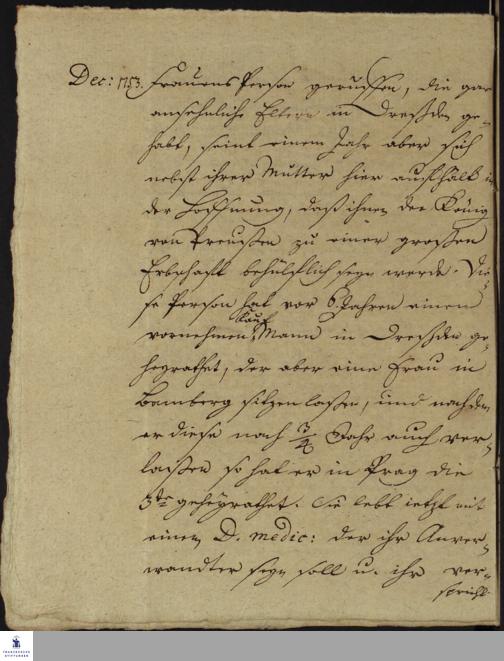 Dec: 1753. Frauens Person geruffen, die gar
ansehnliche Eltern in Dreßden ge-
habt, seint einem Jahr aber sich
nebst ihrer Mutter hier aufhält in
der Hoffnung, daß ihnen der König
von Preußen zu einer großen
Erbschaft behülflich seyn werde. Die-
se Person hat vor 6. Jahren einen
vornehmen Kauf Mann in Dreßden ge-
heyrathet, der aber eine Frau in
Bamberg sitzen laßen, und nachdem
er diese nach 3/4 Jahr auch ver-
laßen so hat er in Prag die
3te geheyrathet. Sie lebt ietzt mit
einem D. medic: der ihr Anver-
wandter seyn soll u. ihr ver-
spricht
FRANCKESCHE
STIFTUNGEN